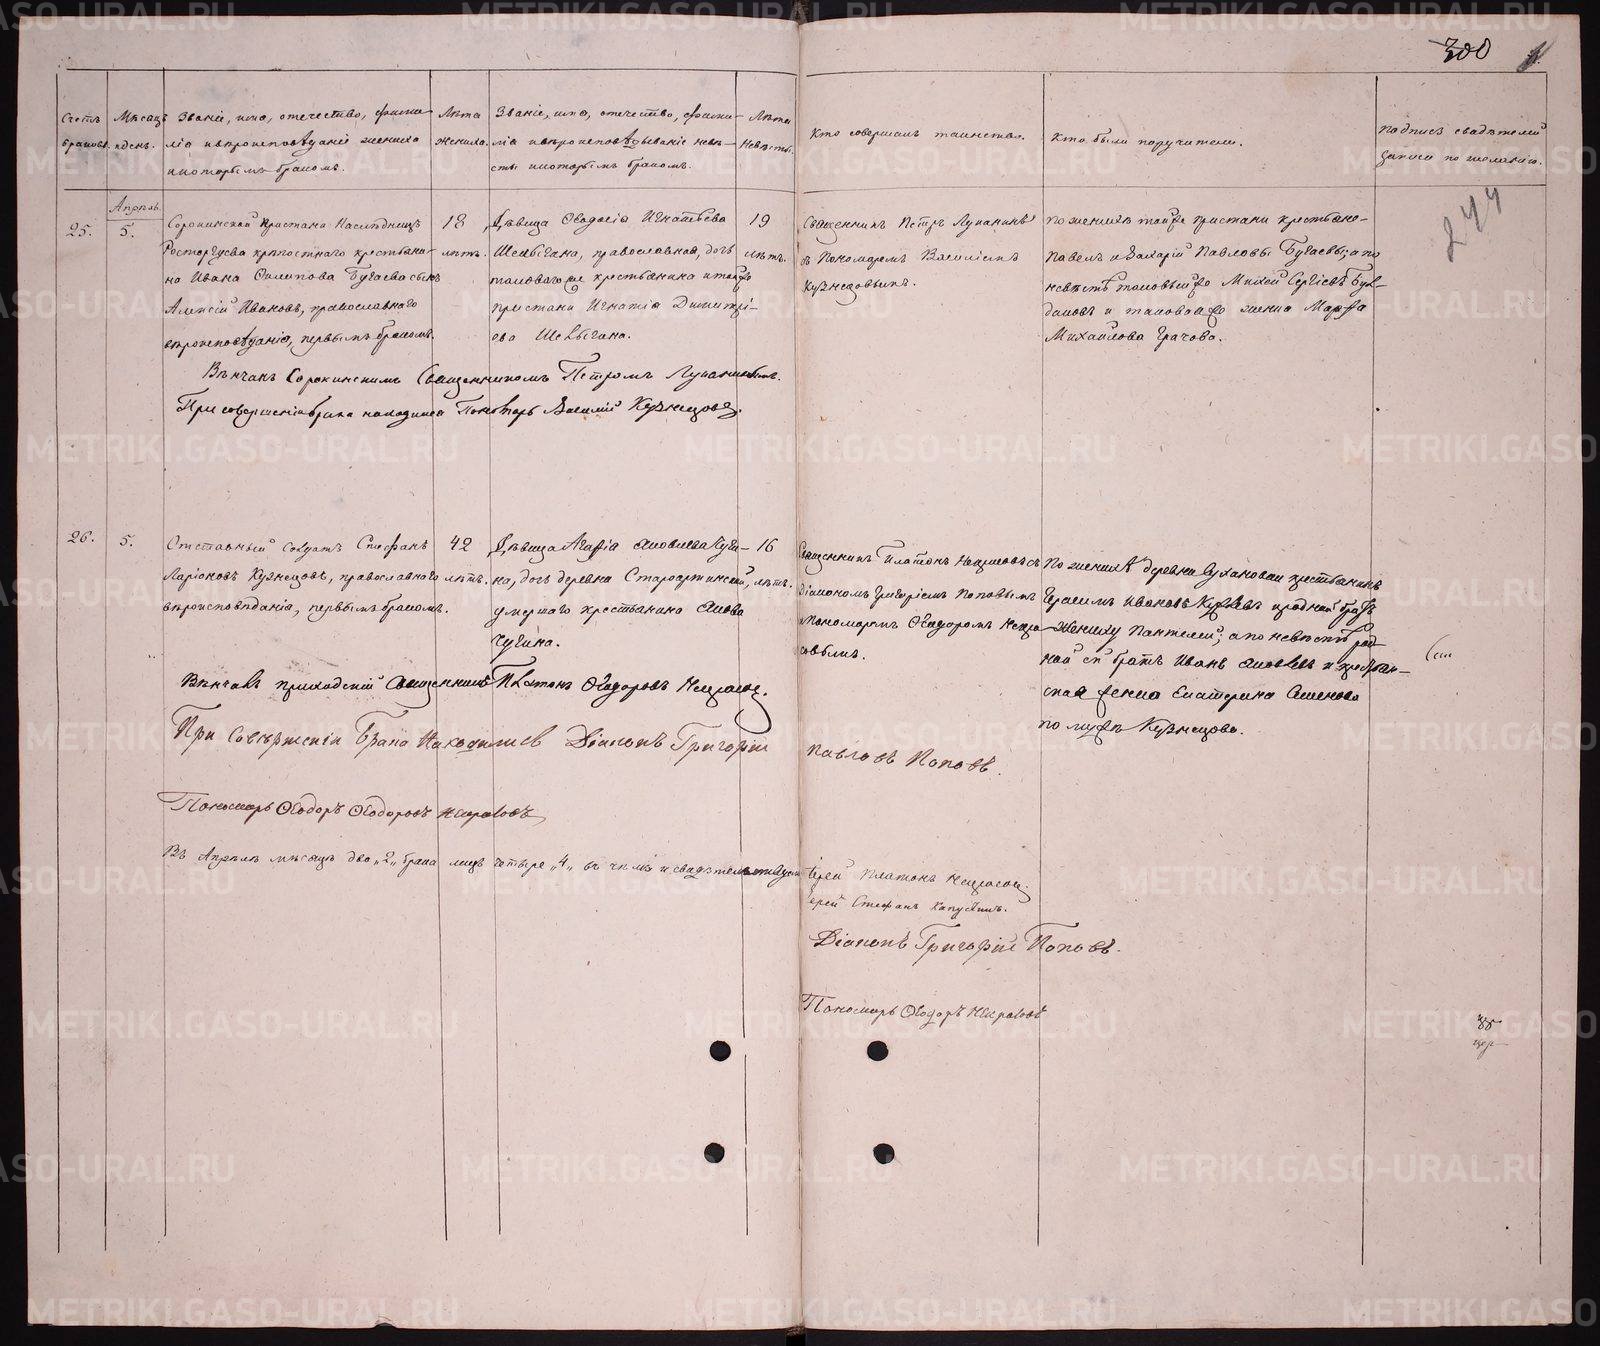 300
244
Счетъ браковъ.
Мѣсяцъ и день.
Званіе, имя, отечество, фами-
лія и вѣроисповѣданіе жениха
и которымъ бракомъ.
Лѣта
жениха.
Званіе, имя, отечество, фами-
лія и вѣроисповѣдываніе невѣ-
сты и которымъ бракомъ.
Лѣта
невѣсты.
Кто совершалъ таинство.
Кто были поручители.
Подпись свидѣтелей
записи по желанію.
Апрѣль.
25.
5.
Сорокинской Пристани Наслѣдницъ
Расторгуева крѣпостнаго крестьяни-
на Ивана Филипова Бугаева сынъ
Алексій Ивановъ, православнаго
вѣроисповѣданія, первымъ бракомъ.
18
лѣтъ.
Дѣвица Ѳеодосія Игнатьева
Шевыгана, православная, дочь
таковаго же крестьянина и той же
пристани Игнатія Димитрі-
ева Шевыгана.
19
лѣтъ.
Священникъ Петръ Луканинъ
съ Пономаремъ Василіемъ
Кузнецовымъ.
По женихѣ той же пристани крестьяне-
Павелъ и Захарій Павловы Бугаевы; а по
невѣстѣ таковый же Михей Сергіевъ Бул-
даковъ и таковая же женка Марфа
Михайлова Грачова.
Вѣнчанъ Сорокинскимъ Священникомъ Петромъ Луканинымъ.
При совершеніи брака находился Пономарь Василій Кузнецовъ.
26.
5.
Отставный солдатъ Стефанъ
Ларіоновъ Кузнецовъ, православнаго
вѣроисповѣданія, первымъ бракомъ.
42
лѣтъ.
Дѣвица Агафія Яковлева Чуги-
на, дочь деревни Староартинской,
умершаго крестьянина Якова
Чугина.
16
лѣтъ.
Священникъ Платонъ Некрасовъ съ
Діакономъ Григоріемъ Поповымъ
и Пономаремъ Ѳеодоромъ Некра-
совымъ.
По женихѣ деревни Сухановки крестьянинъ
Герасимъ Ивановъ и родной братъ
жениху Пантелей; а по невѣстѣ род-
ной ей братъ Иванъ Яковлевъ и крестьян-
ская женка Екатерина Семенова
по мужѣ Кузнецова.
Вѣнчалъ приходскій Священникъ Платонъ Ѳеодоровъ Некрасовъ.
При Совѣршеніи Брака Находились Діаконъ Григорій
Павловъ Поповъ.
Пономарь Ѳеодоръ Ѳеодоровъ Некрасовъ
Въ Апрѣлѣ мѣсяцѣ два „2„ брака лицъ четыре „4„ въ чемъ и свидѣтельствуемъ
Іерей Платонъ Некрасовъ.
Іерей Стефанъ Капустинъ.
Діаконъ Григорій Поповъ.
Пономарь Ѳеодоръ Некрасовъ
METRIKI.GASO-URAL.RU